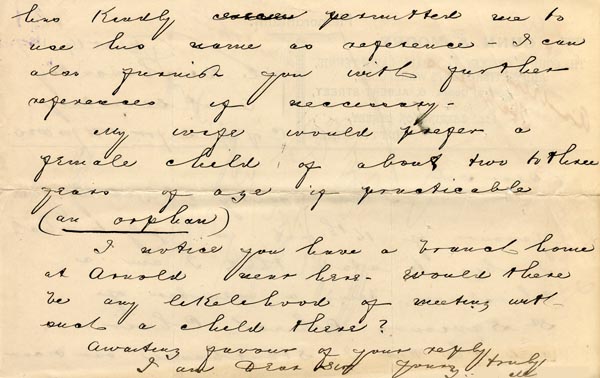 has kindly permitted me to
use his name as reference - I can
also furnish you with further
references if neccessary -
My wife would prefer a
female child of about two to three
years of age if practicable
(an orphan)
I notice you have a branch home
at Arnold near here - would there
be any likelehood of meeting with
such a child there?
Awaiting favour of your reply
I am Dear Sir yours truly